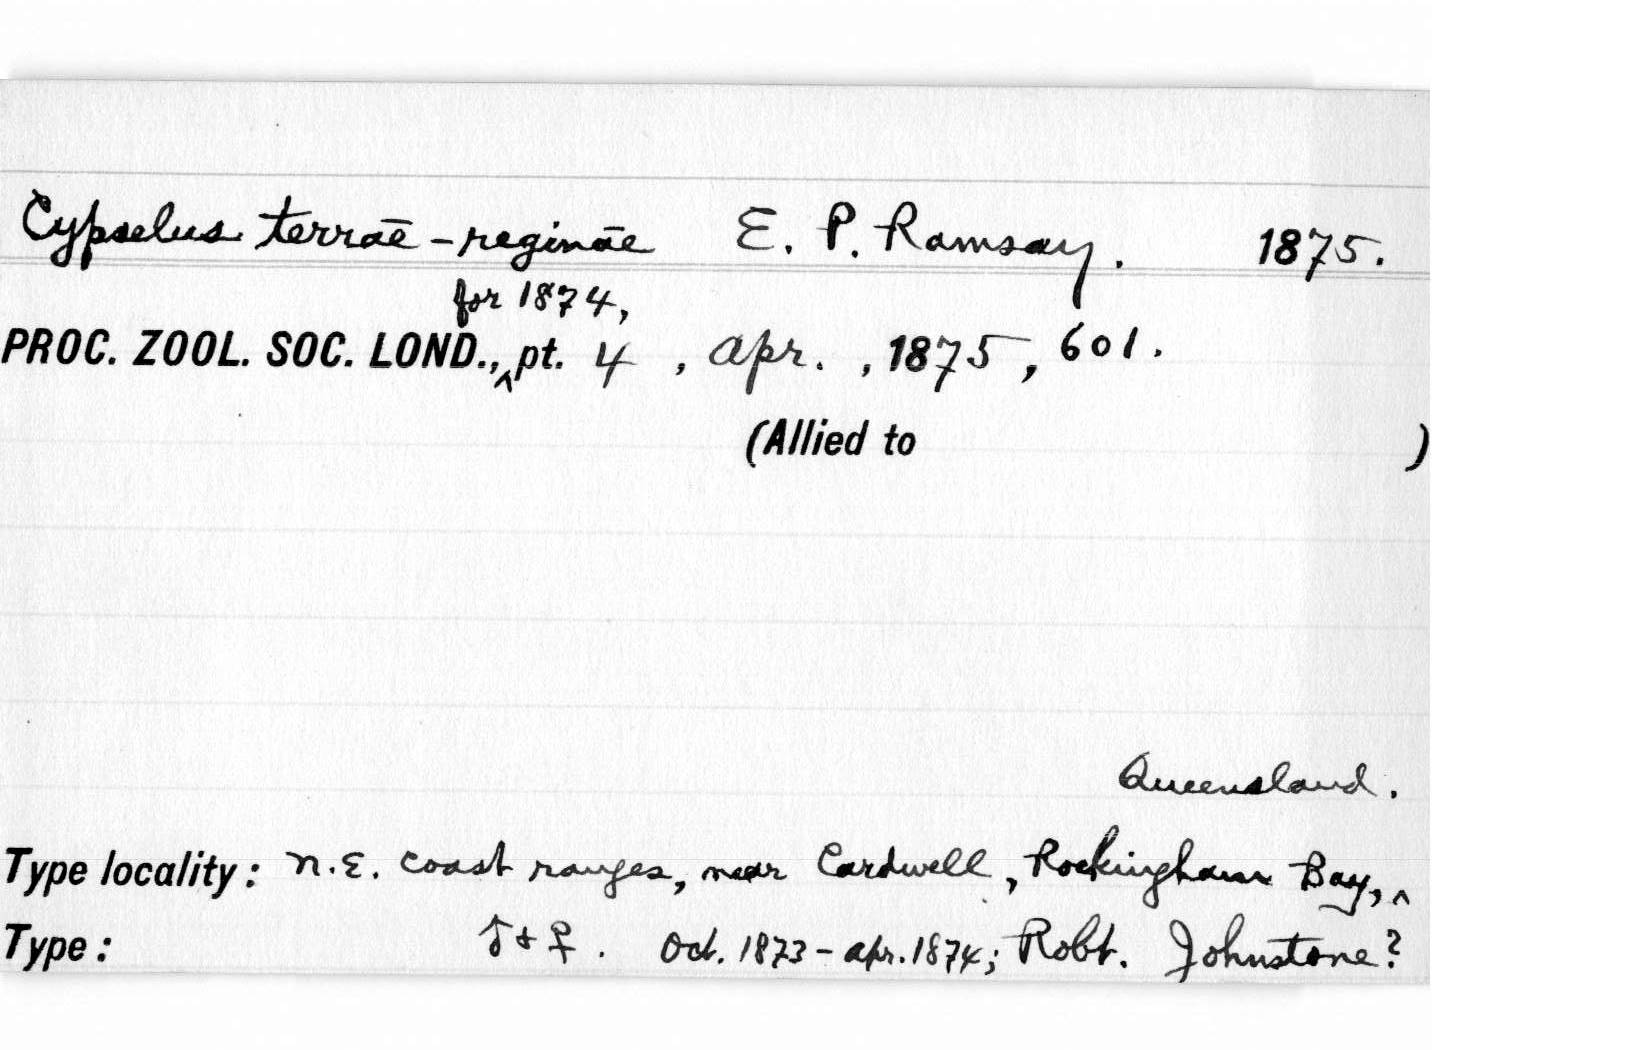 Cypselus terrae-reginae E. P. Ramsay. 1875.
for 1874,
PROC. ZOOL. SOC. LOND., ^ pt. 4, Apr., 1875, 601.
(Allied to )
Queensland.
Type locality: N.E. coast ranges, near Cardwell, Rockingham Bay, ^
Type: ♂ + ♀. Oct. 1873 - Apr. 1874; Robt. Johnstone?